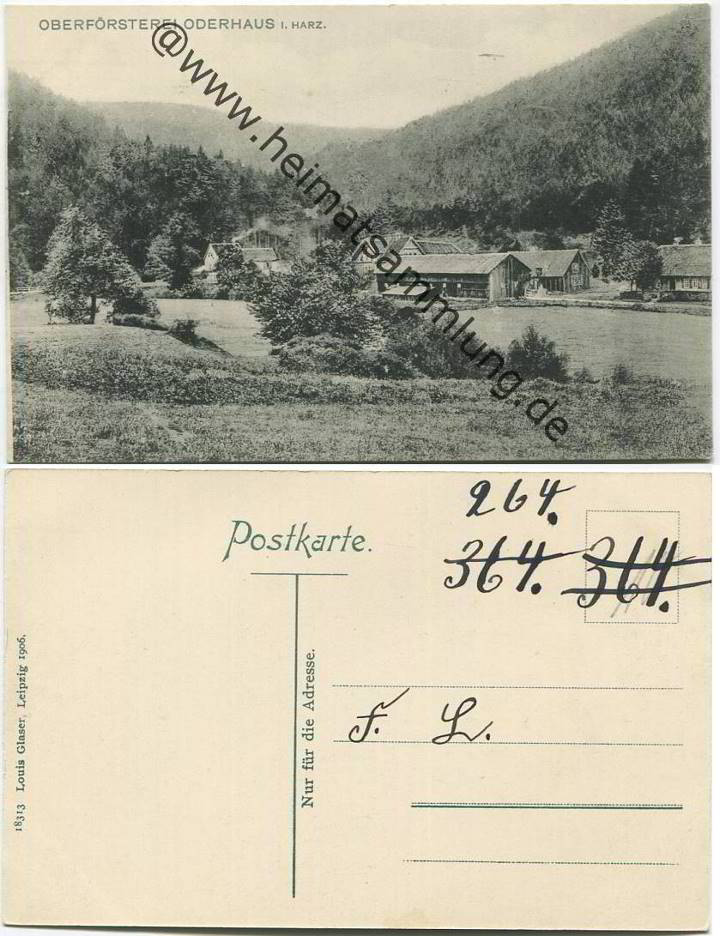 OBERFÖRSTEREI ODERHAUS I. HARZ.
@www.heimatsammlung.de
264.
Postkarte.
364. 364.
Nur für die Adresse.
18313 Louis Glaser, Leipzig 1906.
F. L.